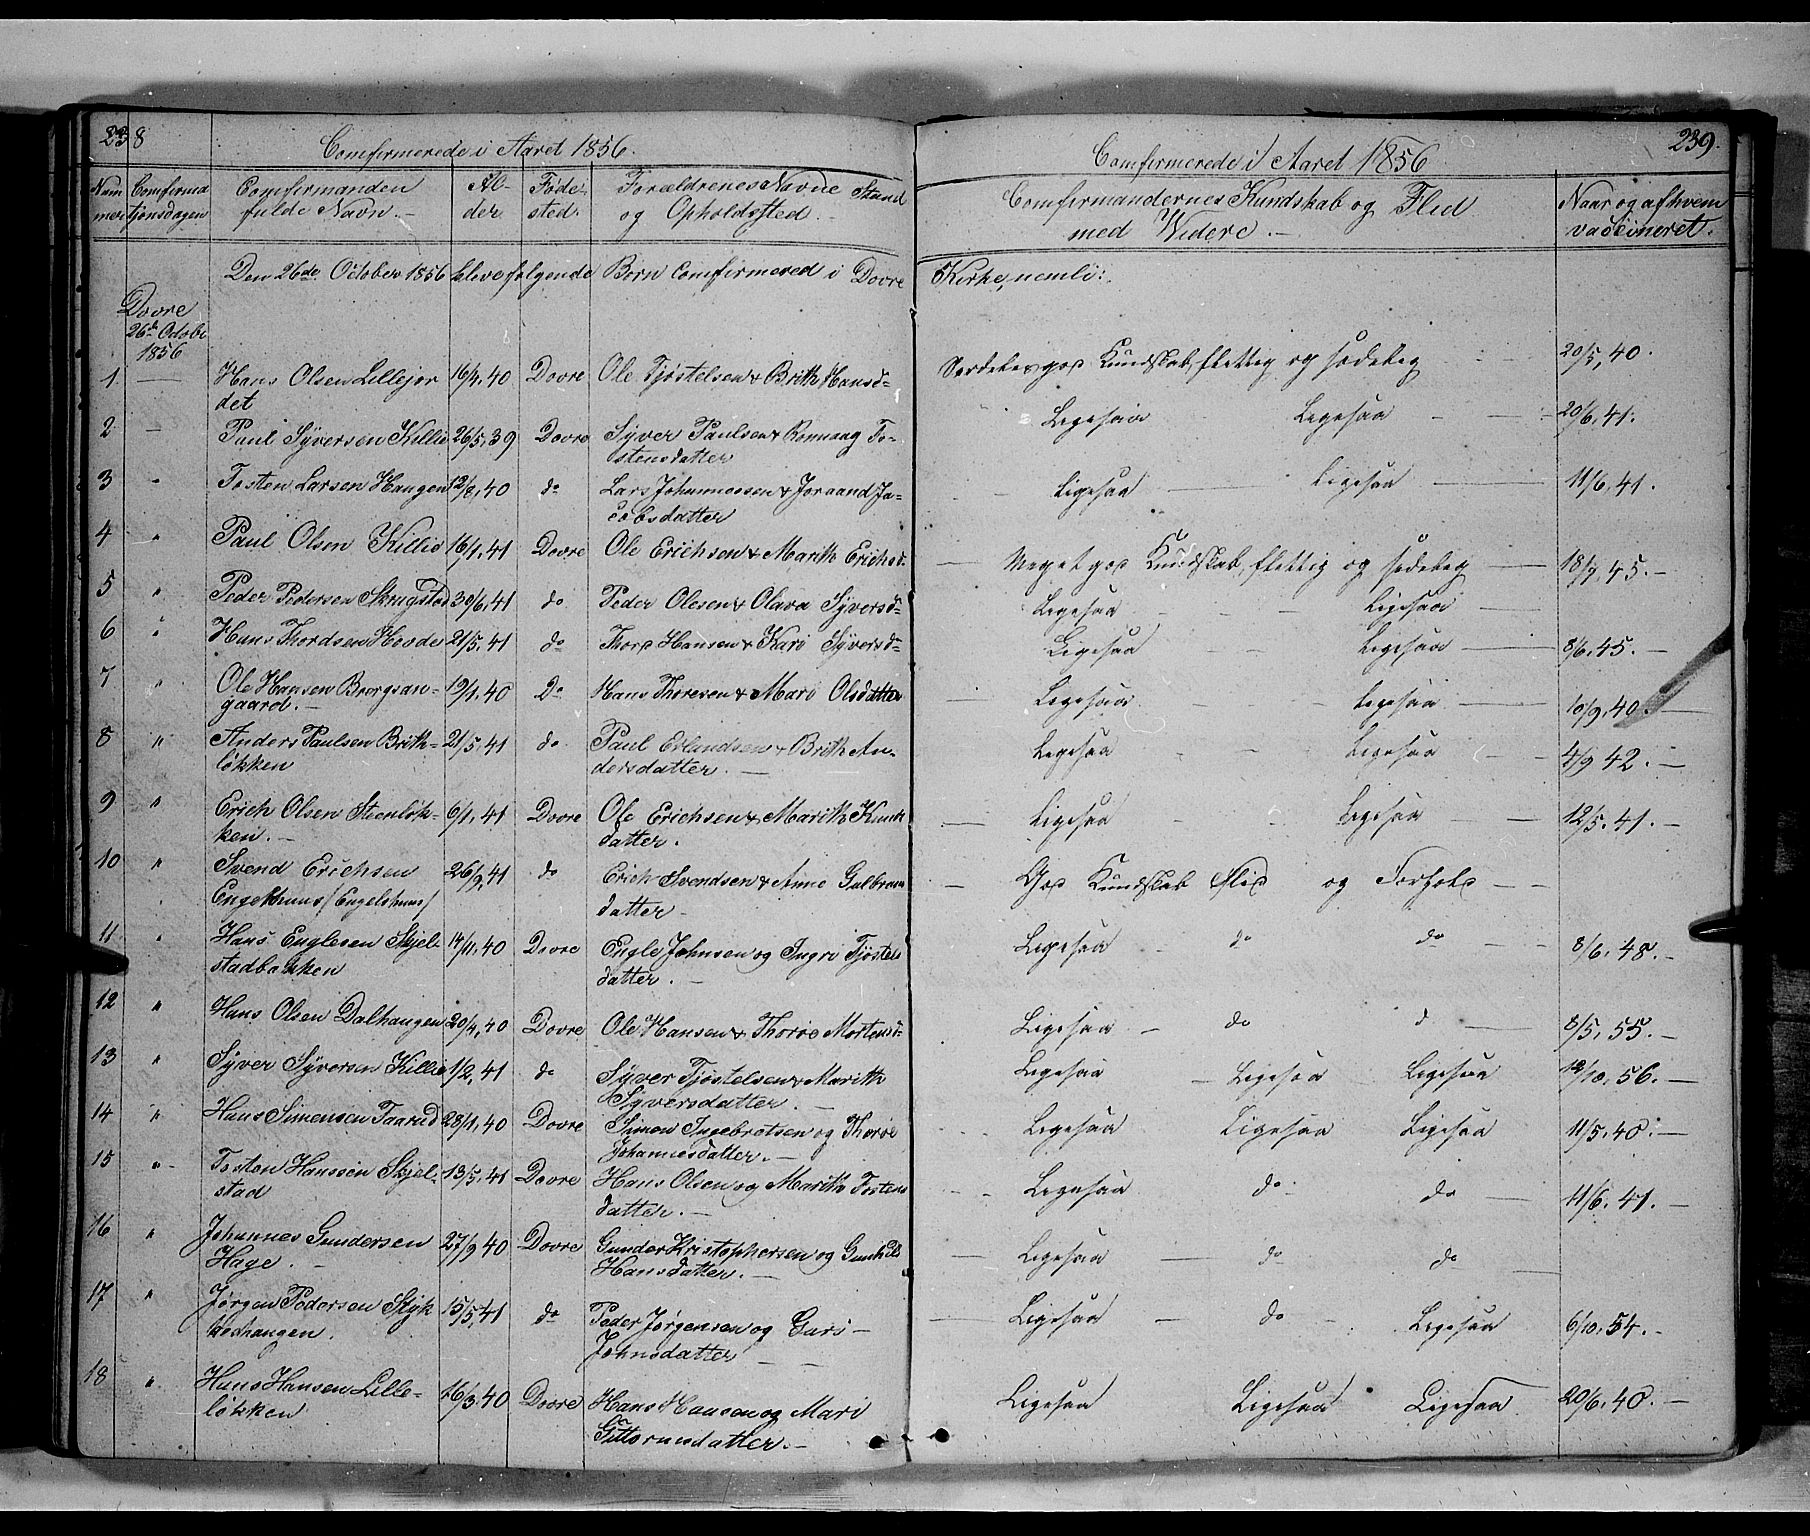 238
Comfirmerede i Aaret 1856.
Num mer Comfirma tjonsdagen Comfirmanden fulde Navn.- Al- der Føde- sted. Forældrenes Navne Stand og Opholdssted.-
Den 26de October 1856 bleve følgende Børn Comfirmered i Dovre
Dovre
26de Octobr
1856
1 — Hans Olsen Lillejor 16/4, 40 Dovre Ole Tjøstelsen & Brith Hansd-
det
2 — Paul Syversen Killie 26/5, 39 Dovre Syver Paulsen & Ronnaug To-
stensdatter
3 " Tosten Larsen Haugen 12/8, 40 do Lars Johannessen & Joraand Ja-
cobsdatter
4 " Paul Olsen Killie 16/1, 41 Dovre Ole Erichsen & Marith Erichsd.
5 " Peder Pedersen Skrugstad 30/6, 41 do Peder Olesen & Olava Syversd-
6 " Hans Thordsen Hovde 21/5, 41 do Thord Hansen & Kari Syversd-
7 " Ole Hansen Borgsan- 19/1, 40 Do Hans Thoresen & Mari Olsdatter
gaard.-
8 " Anders Paulsen Brith- 21/5, 41 do Paul Erlandsen & Brith An-
løkken dersdatter.—
9 " Erich Olsen Steenløk- 6/1, 41 Dovre Ole Erichsen & Marith Knuds
ken.- datter.
10 " Svend Erichsen 26/9, 41 do Erich Svendsen & Anne Gulbrans
Engekhuus /Engelshuus/ datter-
11 " Hans Englesen Skjel- 14/11, 40 Dovre Engle Johnsen og Ingri Tjøstels
stadbakken datter.-
12 " Hans Olsen Dalhaugen 20/4, 40 Dovre Ole Hansen & Thorøe Mortensd-
13 " Syver Syversen Killie 1/2, 41 do Syver Tjøstelsen & Marith
Syversdatter.-
14 " Hans Simensen Taarud 28/1, 40 Dovre Simen Ingebretsen og Thorøe
Johannesdatter.-
15 " Tosten Hanssen Skjel- 13/5, 41 Dovre Hans Olsen og Marith Tostens
stad datter.-
16 " Johannes Gundersen 27/9, 40 Dovre Gunder Kristophersen og Gunhild
Hage.- Hansdatter.—
17 " Jørgen Pedersen Skjk 15/5, 41 do Peder Jørgensen og Guri-
kehaugen. Johnsdatter — —
18 " Hans Hansen Lille- 16/3, 40 Dovre Hans Hansen og Mari
løkken Guttormsdatter.-
239.
Comfirmerede i Aaret 1856
Comfirmandernes Kundskab og Flid Naar og af hvem
med Widere.- vaccineret.
Kirke, nemli:
Særdeles god Kundskab, flettig og sædelig 20/5, 40.
Ligesaa — Ligesaa — 20/6, 41.
Ligesaa — Ligesaa — 11/6, 41.
Meget god Kundskab, flettig og sædelig — 18/7, 45.-
Ligesaa - Ligesaa —
Ligesaa - Ligesaa — 8/6, 45.-
Ligesaa - Ligesaa — 10/9, 40.-
Ligesaa - Ligesaa - 4/9 42.-
Ligesaa - Ligesaa - 12/5, 41.-
God Kundskab Flid og Forhold - -
Ligesaa - do do - 8/6, 48.-
Ligesaa - do d — 8/5, 55.-
Ligesaa - Ligesaa Ligesaa 12/10, 56.-
Ligesaa Ligesaa Ligesaa 11/5, 40.-
Ligesaa do do — 11/6, 41.-
Ligesaa do do
Ligesaa - do - Ligesaa 6/10, 54.-
Ligesaa Ligesaa Ligesaa 20/6, 40.-